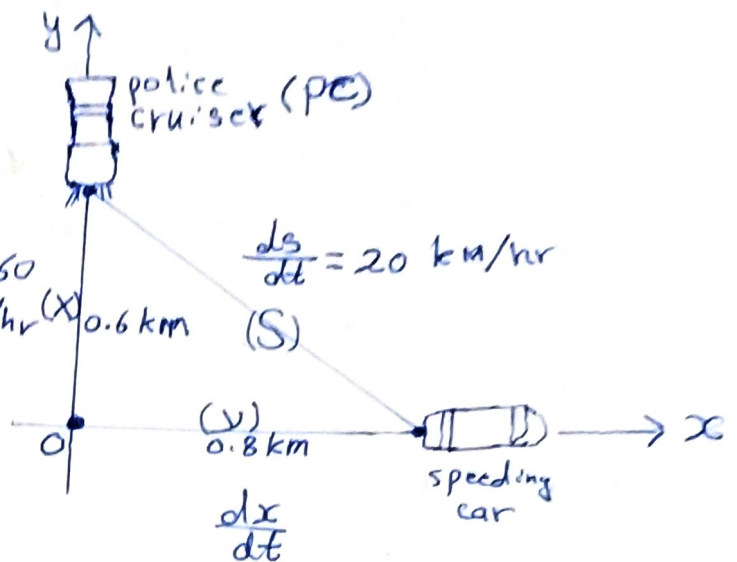 y
police (PC)
cruiser
ds/dt = 20 km/hr
60
/hr (x) 0.6 km (S)
O (y) x
0.8 km
speeding
car
dx/dt